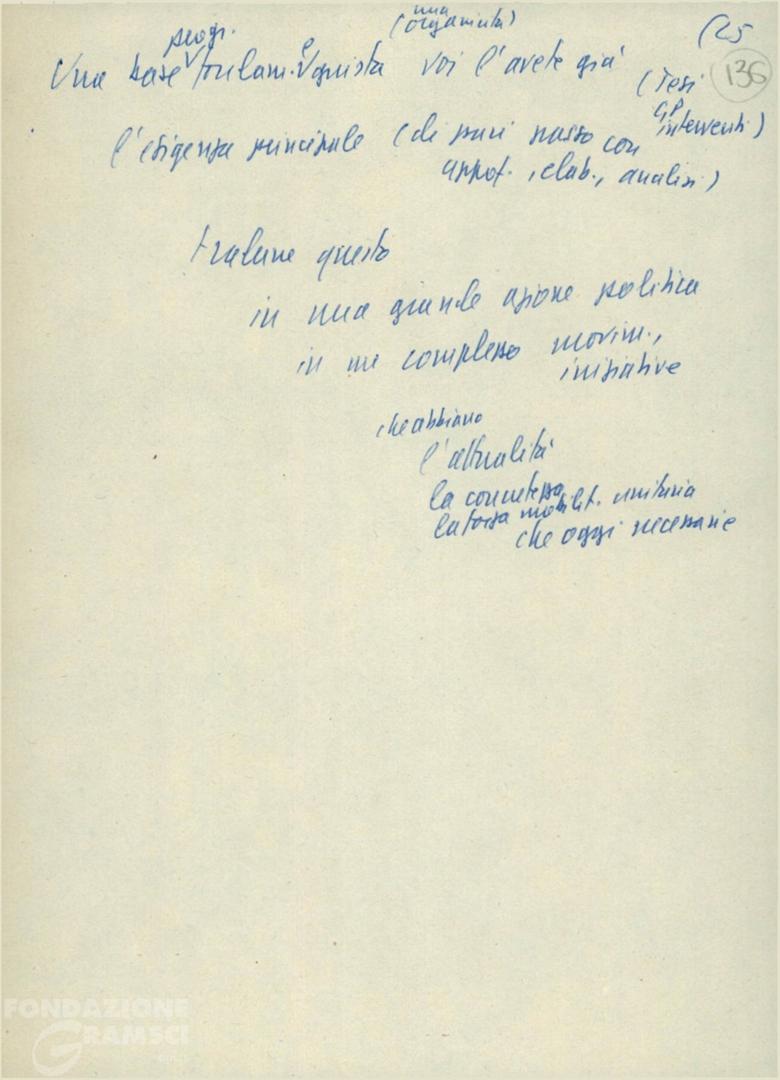 (una
progr. organicità) (25
136
Una base fondam. e giusta voi l'avete già (Tesi
GP
interventi)
l'esigenza principale (di pari passo con
appr., elab., analisi)
tradurre questo
in una grande azione politica
in un complesso movim.,
iniziative
che abbiano
l'attualità
la concretezza
la forza mobilit. unitaria
che oggi necessarie
FONDAZIONE
GRAMSCI